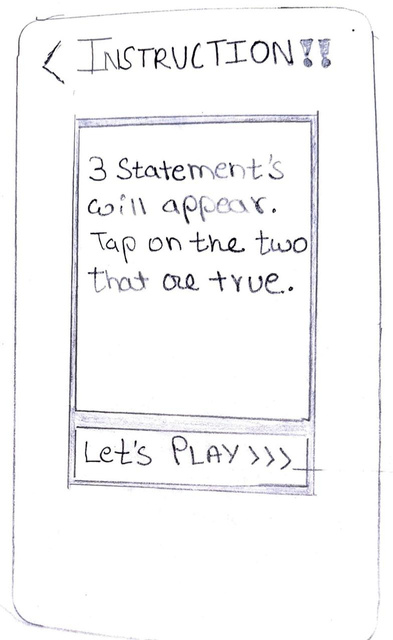 < INSTRUCTION!!
3 Statement's
will appear.
Tap on the two
that are true.
Let's PLAY >>>